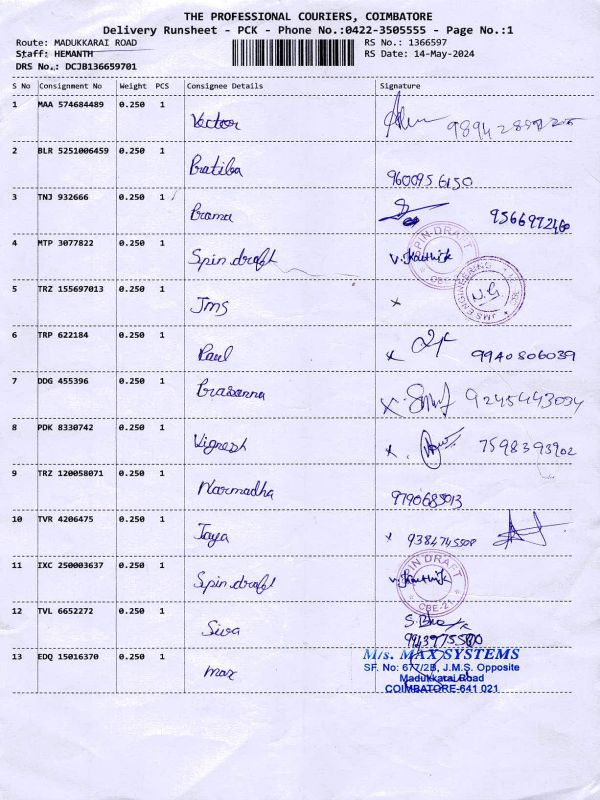 THE PROFESSIONAL COURIERS, COIMBATORE
Delivery Runsheet - PCK - Phone No.:0422-3505555 - Page No.:1
Route: MADUKKARAI ROAD RS No.: 1366597
Staff: HEMANTH RS Date: 14-May-2024
DRS No.: DCJB136659701
S No Consignment No Weight PCS Consignee Details Signature
1 MAA 574684489 0.250 1 Vectoor
2 BLR 5251006459 0.250 1 Pratiba 9600956150
3 TNJ 932666 0.250 1 Brama 9566972460
4 MTP 3077822 0.250 1 Spin draft V. Kauthik
SPIN DRAFT
5 TRZ 155697013 0.250 1 Jms x N.G
JMS ENGINEERING
6 TRP 622184 0.250 1 Raul x 9940806039
7 DDG 455396 0.250 1 Prasanna x 9245443034
8 PDK 8330742 0.250 1 Vignesh x 7598393902
9 TRZ 120058071 0.250 1 Narmadha 9790685013
10 TVR 4206475 0.250 1 Jaya x 9384745508
11 IXC 250003637 0.250 1 Spin draft V. Kauthik
SPIN DRAFT
CBE-21
12 TVL 6652272 0.250 1 Siva
13 EDQ 15016370 0.250 1 max
M/s. MAX SYSTEMS
SF. No: 677/2B, J.M.S. Opposite
Madukkarai Road
COIMBATORE-641 021